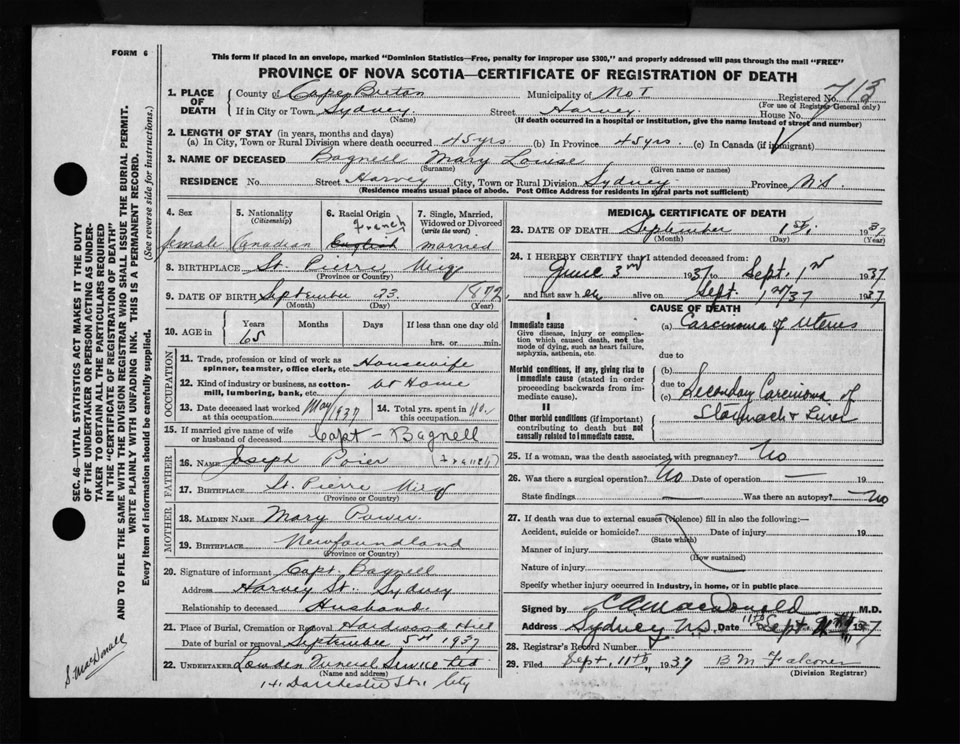 FORM 6
This form if placed in an envelope, marked "Dominion Statistics—Free, penalty for improper use $300," and properly addressed will pass through the mail "FREE"
PROVINCE OF NOVA SCOTIA—CERTIFICATE OF REGISTRATION OF DEATH
1. PLACE OF DEATH County of Cape Breton Municipality of No 1 Registered No. 713
(For use of Registrar General only)
If in City or Town Sydney Street Harvey House No.
(Name) (If death occurred in a hospital or institution, give the name instead of street and number)
2. LENGTH OF STAY (in years, months and days)
(a) In City, Town or Rural Division where death occurred 45 yrs. (b) In Province 45 yrs. (c) In Canada (if immigrant)
3. NAME OF DECEASED Bagnell Mary Louise
(Surname) (Given name or names)
RESIDENCE No. Street Harvey City, Town or Rural Division Sydney Province N.S
(Residence means usual place of abode. Post Office Address for residents in rural parts not sufficient)
4. Sex 5. Nationality (Citizenship) 6. Racial Origin 7. Single, Married, Widowed or Divorced (write the word)
female Canadian French English married
8. BIRTHPLACE St. Pierre
(Province or Country)
9. DATE OF BIRTH September 23 1872
(Month) (Day) (Year)
10. AGE in Years Months Days If less than one day old
65 hrs. or min.
OCCUPATION
11. Trade, profession or kind of work as spinner, teamster, office clerk, etc. Housewife
12. Kind of industry or business, as cotton-mill, lumbering, bank, etc. at Home
13. Date deceased last worked at this occupation May 1937 14. Total yrs. spent in this occupation 40
15. If married give name of wife or husband of deceased Capt - Bagnell
FATHER
16. NAME Joseph Poier (French)
17. BIRTHPLACE St. Pierre
(Province or Country)
MOTHER
18. MAIDEN NAME Mary Power
19. BIRTHPLACE Newfoundland
(Province or Country)
20. Signature of informant Capt. Bagnell
Address Harvey St. Sydney
Relationship to deceased Husband.
21. Place of Burial, Cremation or Removal Hardwood Hill
Date of burial or removal September 5th 1937
22. UNDERTAKER Lowden Funeral Service Ltd
(Name and address)
141 Dorchester St. City
MEDICAL CERTIFICATE OF DEATH
23. DATE OF DEATH September 1st, 1937
(Month) (Day) (Year)
24. I HEREBY CERTIFY that I attended deceased from:
June 3rd 1937 to Sept. 1st 1937
and last saw her alive on Sept. 1st/37 1937
CAUSE OF DEATH
I
Immediate cause
Give disease, injury or complication which caused death, not the mode of dying, such as heart failure, asphyxia, asthenia, etc.
(a) Carcinoma of Uterus
due to
Morbid conditions, if any, giving rise to immediate cause (stated in order proceeding backwards from immediate cause).
(b)
due to
(c) Secondary Carcinoma of Stomach & Liver
II
Other morbid conditions (if important) contributing to death but not causally related to immediate cause.
25. If a woman, was the death associated with pregnancy? No
26. Was there a surgical operation? No Date of operation — 19
State findings Was there an autopsy? No
27. If death was due to external causes (violence) fill in also the following:—
Accident, suicide or homicide? Date of injury 19
(State which)
Manner of injury
(How sustained)
Nature of injury
Specify whether injury occurred in industry, in home, or in public place
Signed by C A MacDonald M.D.
Address Sydney N.S. Date 11th Sept. 1937
28. Registrar's Record Number
29. Filed Sept. 11th, 1937 B M Falconer
(Division Registrar)
SEC. 46—VITAL STATISTICS ACT MAKES IT THE DUTY
OF THE UNDERTAKER OR PERSON ACTING AS UNDER-
TAKER TO OBTAIN ALL THE PARTICULARS REQUIRED
IN THE "CERTIFICATE OF REGISTRATION OF DEATH"
AND TO FILE THE SAME WITH THE DIVISION REGISTRAR WHO SHALL ISSUE THE BURIAL PERMIT.
WRITE PLAINLY WITH UNFADING INK. THIS IS A PERMANENT RECORD.
Every item of information should be carefully supplied. (See reverse side for instructions.)
S. MacDonald